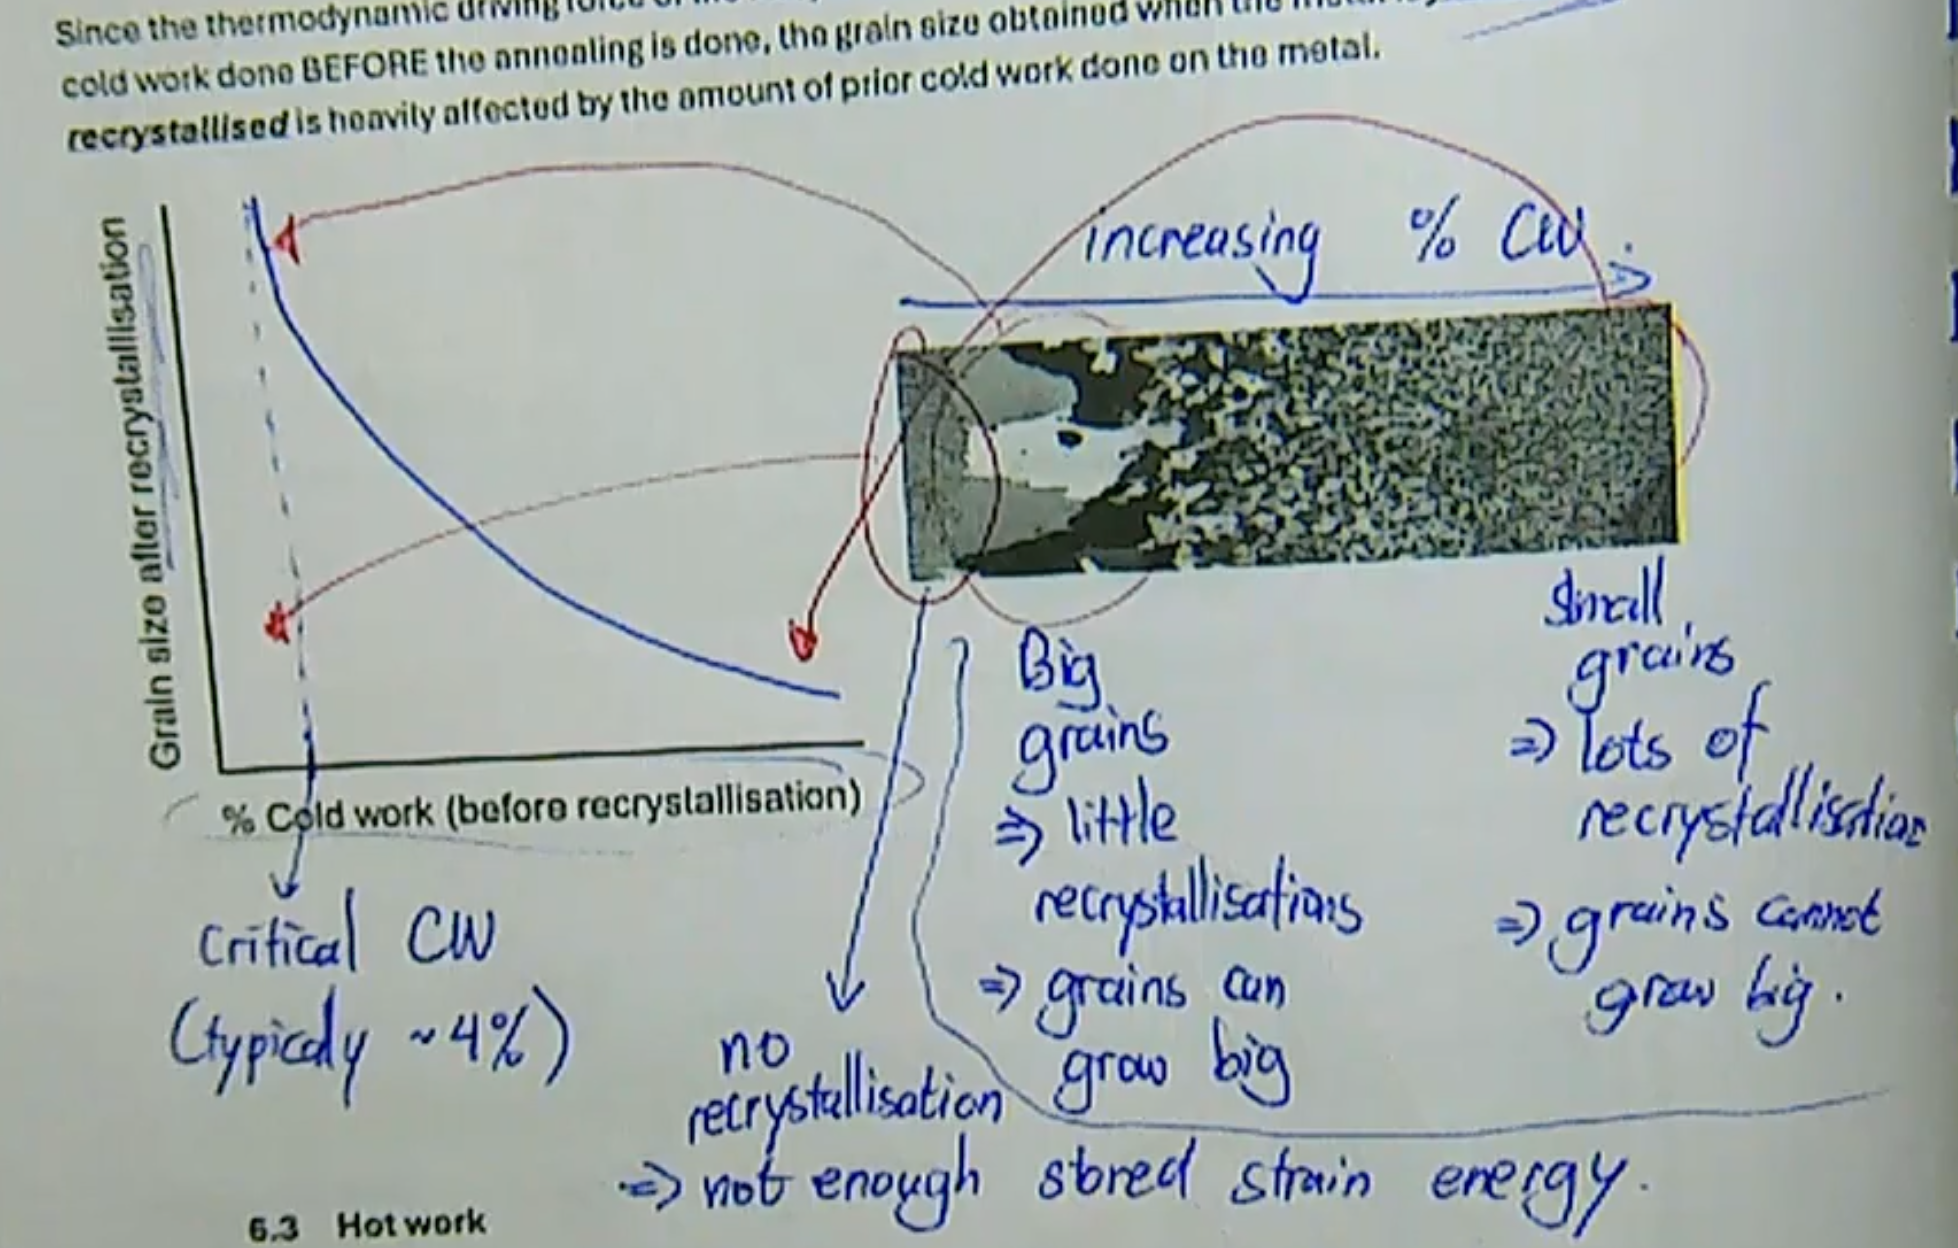 Since the thermodynamic driving force of the
cold work done BEFORE the annealing is done, the grain size obtained when the metal
recrystallised is heavily affected by the amount of prior cold work done on the metal.
increasing % CW
Grain size after recrystallisation
% Cold work (before recrystallisation)
Critical CW
(typicaly ~4%)
no
recrystallisation
=> not enough stored strain energy.
Big
grains
=> little
recrystallisations
=> grains can
grow big
Small
grains
=> lots of
recrystallisation
=> grains cannot
grow big.
6.3 Hot work